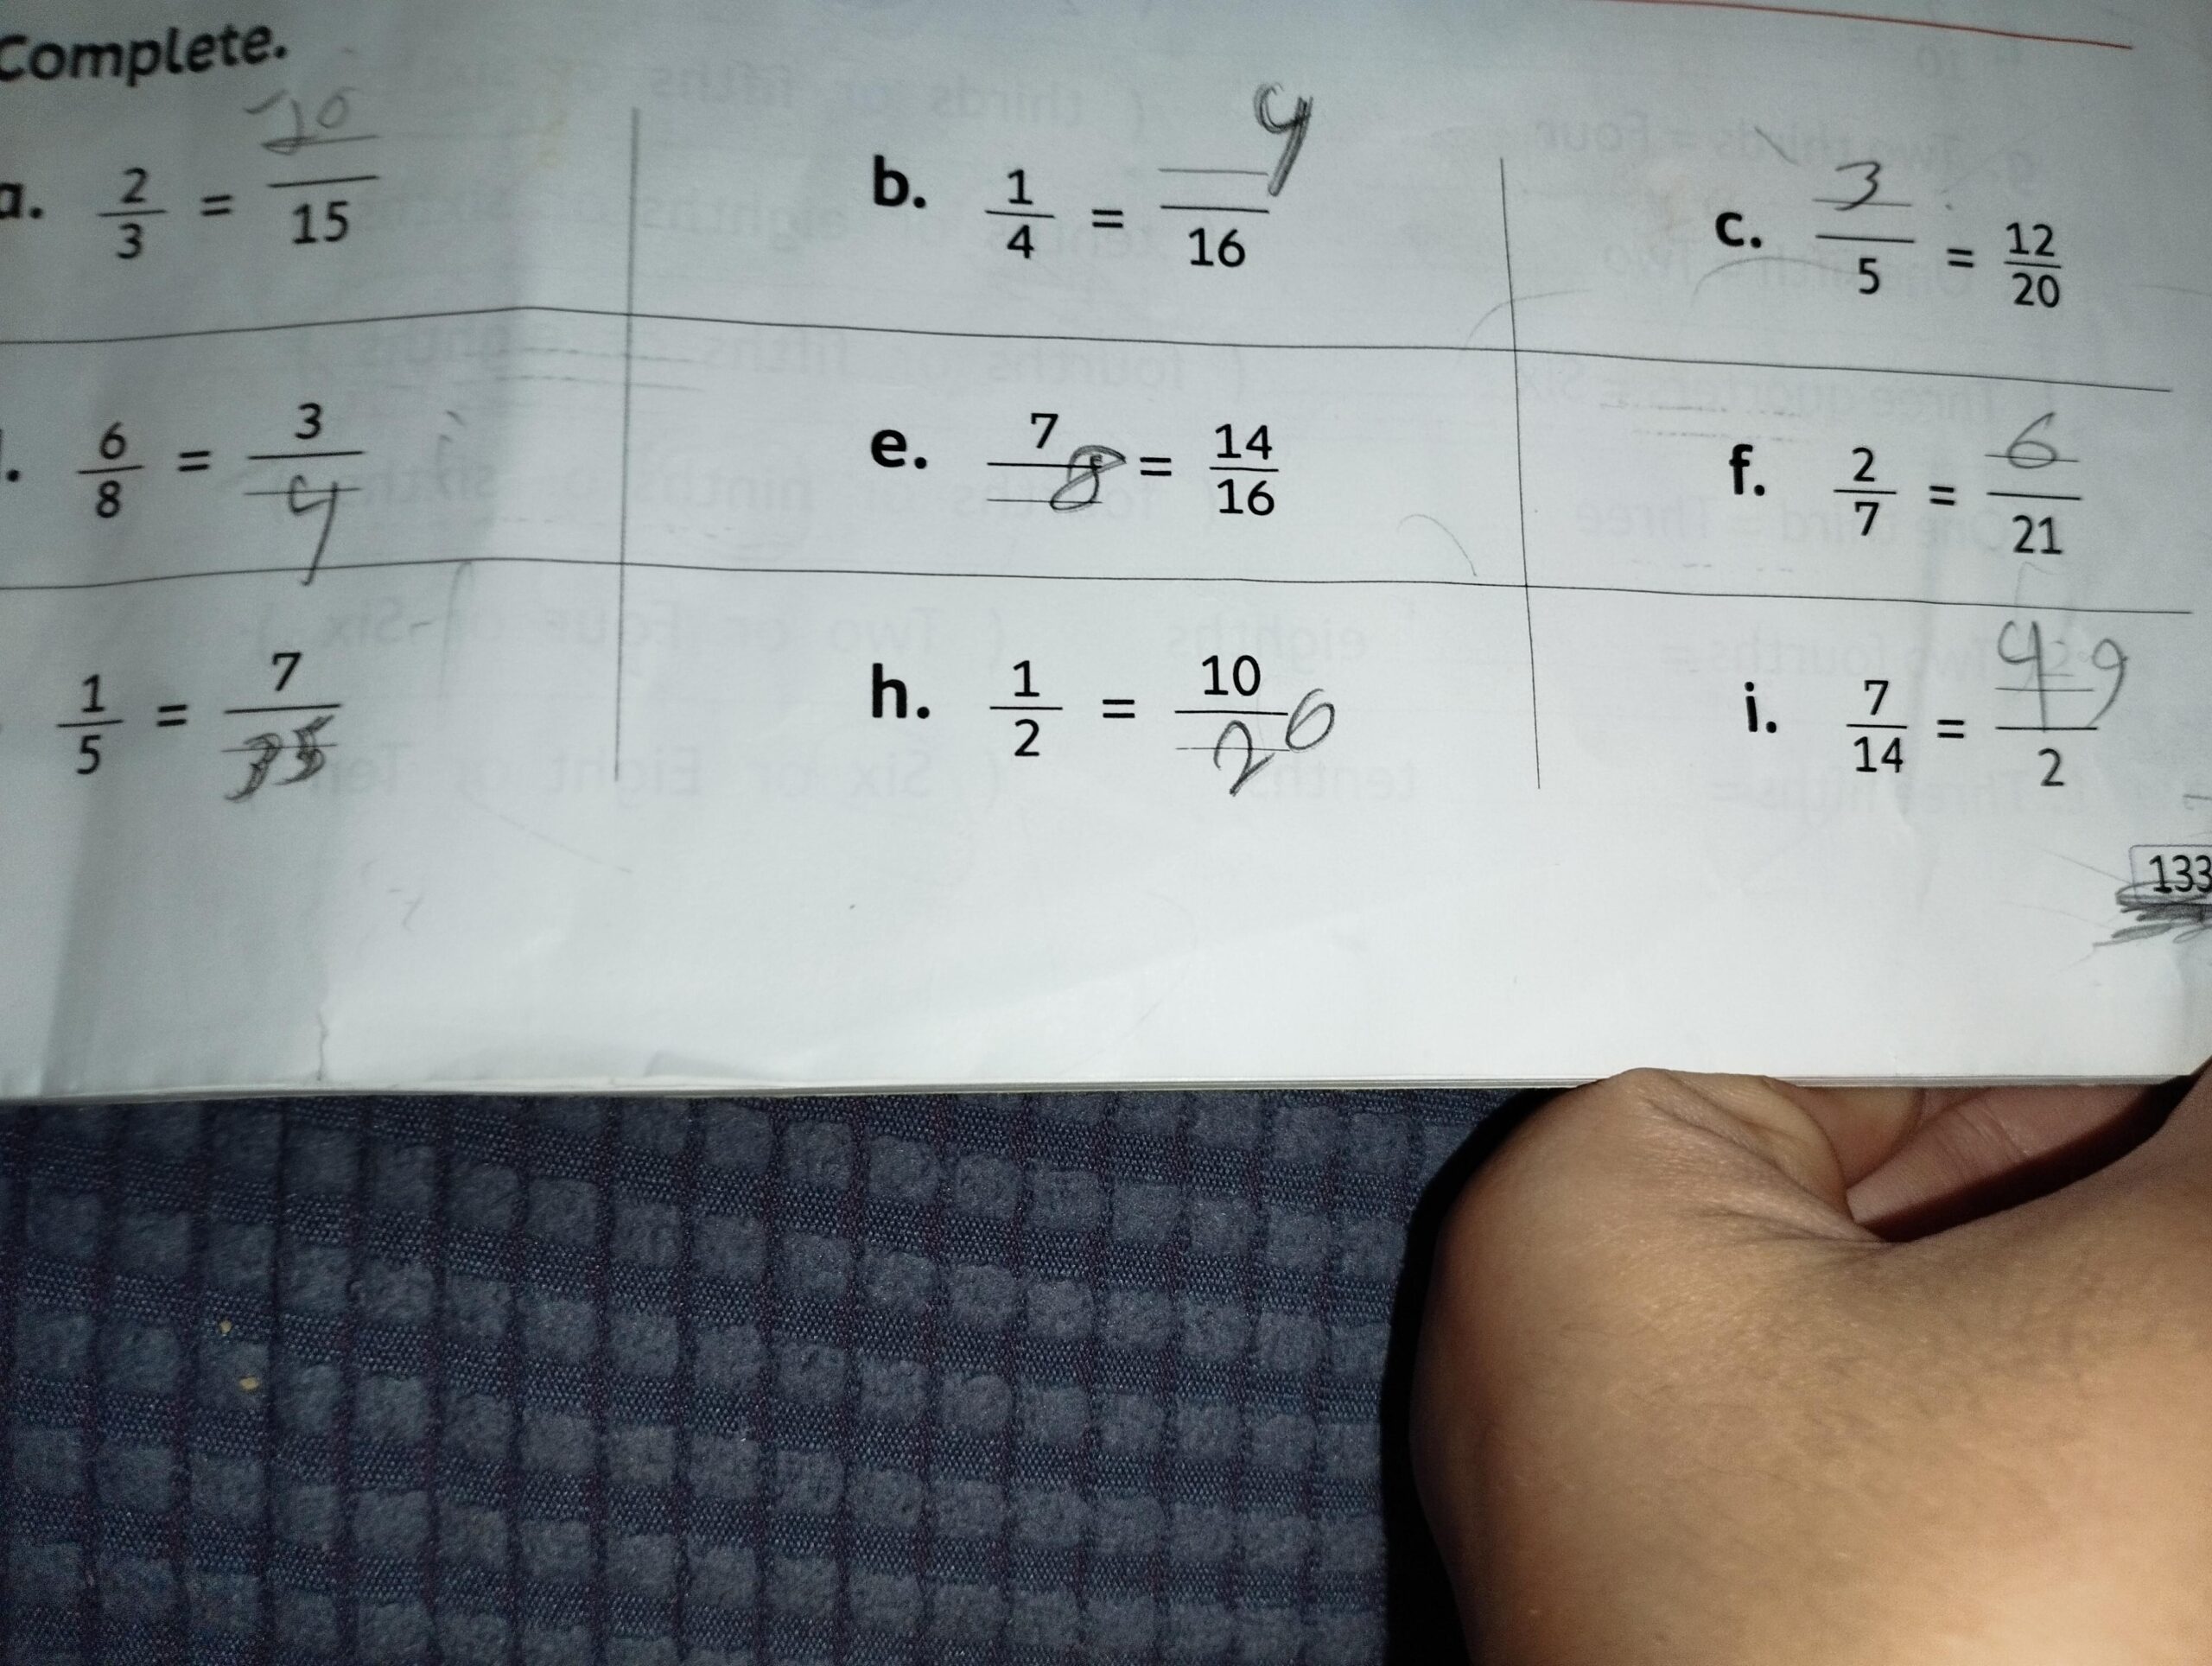 Complete.
a. 2/3 = 10/15
b. 1/4 = 4/16
c. 3/5 = 12/20
. 6/8 = 3/4
e. 7/8 = 14/16
f. 2/7 = 6/21
1/5 = 7/35
h. 1/2 = 10/20
i. 7/14 = 49/2
133